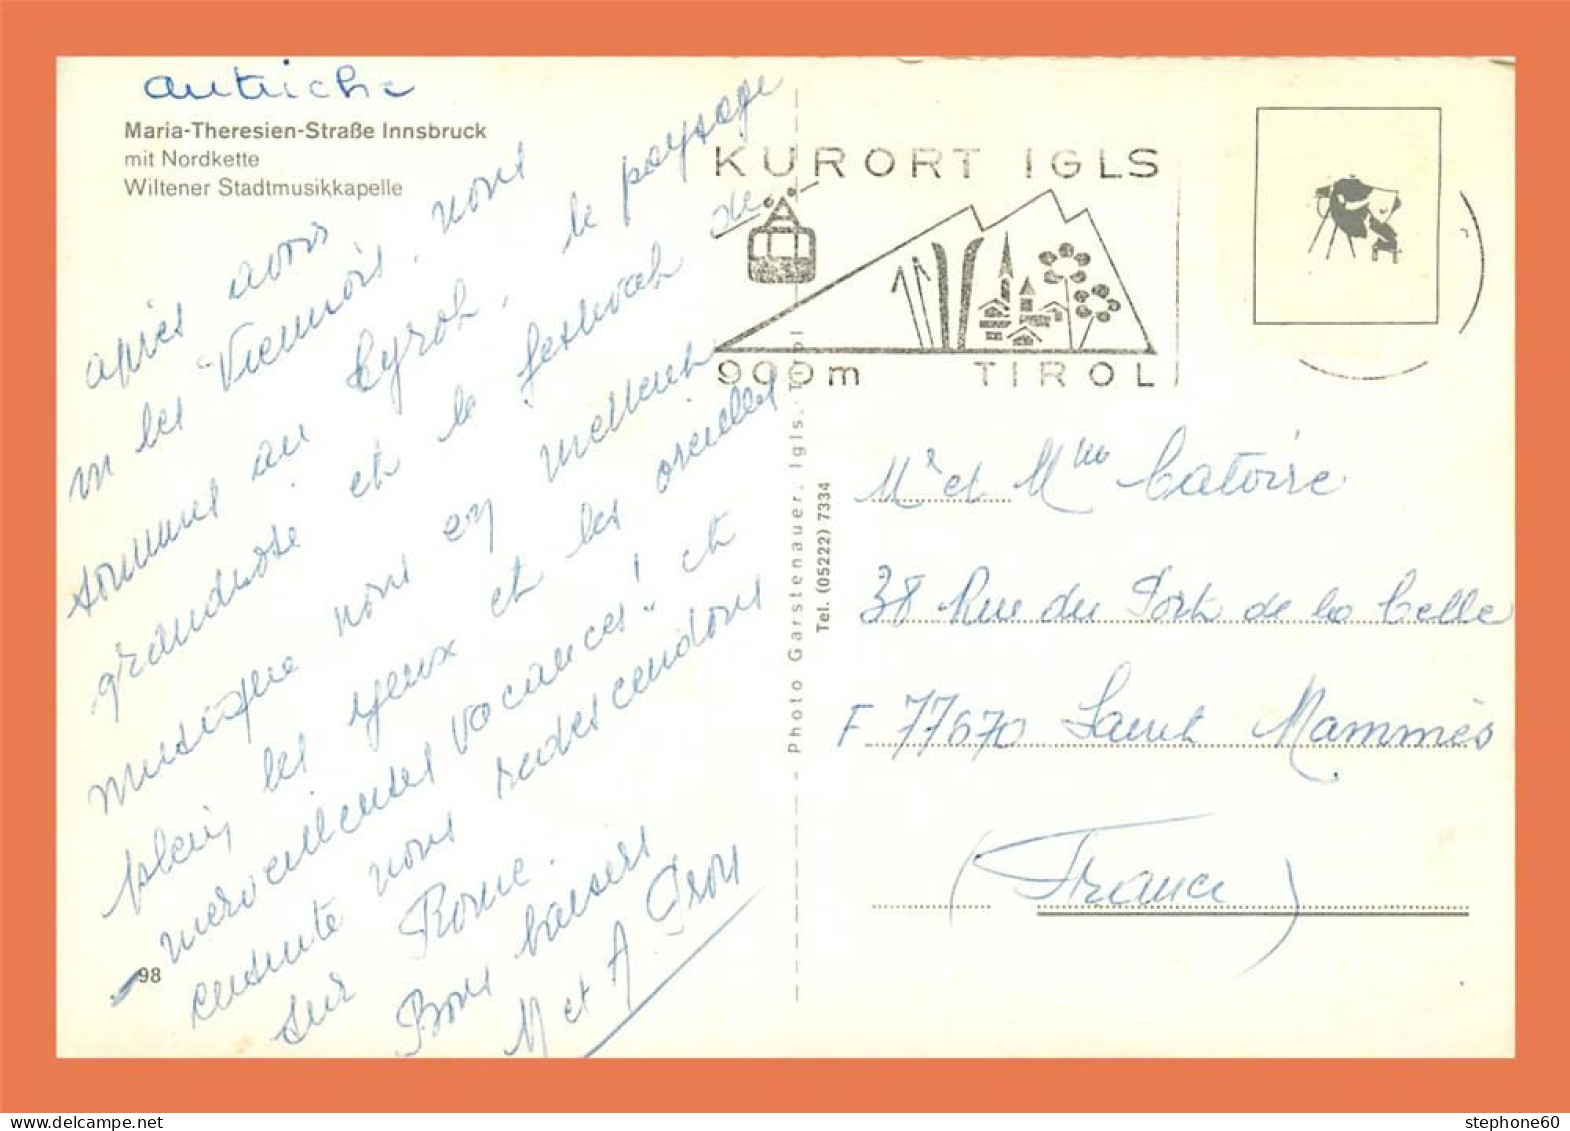 autriche
Maria-Theresien-Straße Innsbruck
mit Nordkette
Wiltener Stadtmusikkapelle
après avoir
vu les "Viennois, nous
sommes au tyrol, le paysage
grandiose et le festival de
musique nous en mettent
plein les yeux et les oreilles
merveilleuses vacances"! et
ensuite nous redescendons
sur Rome.
Bons baisers
M et A.
98
Photo Garstenauer, Igls, Tirol
Tel. (05222) 7334
KURORT IGLS
900m TIROL
Mr et Mme Catoire
38 Rue du Port de la Celle
F 77670 Saint Mammès
(France)
stephone60